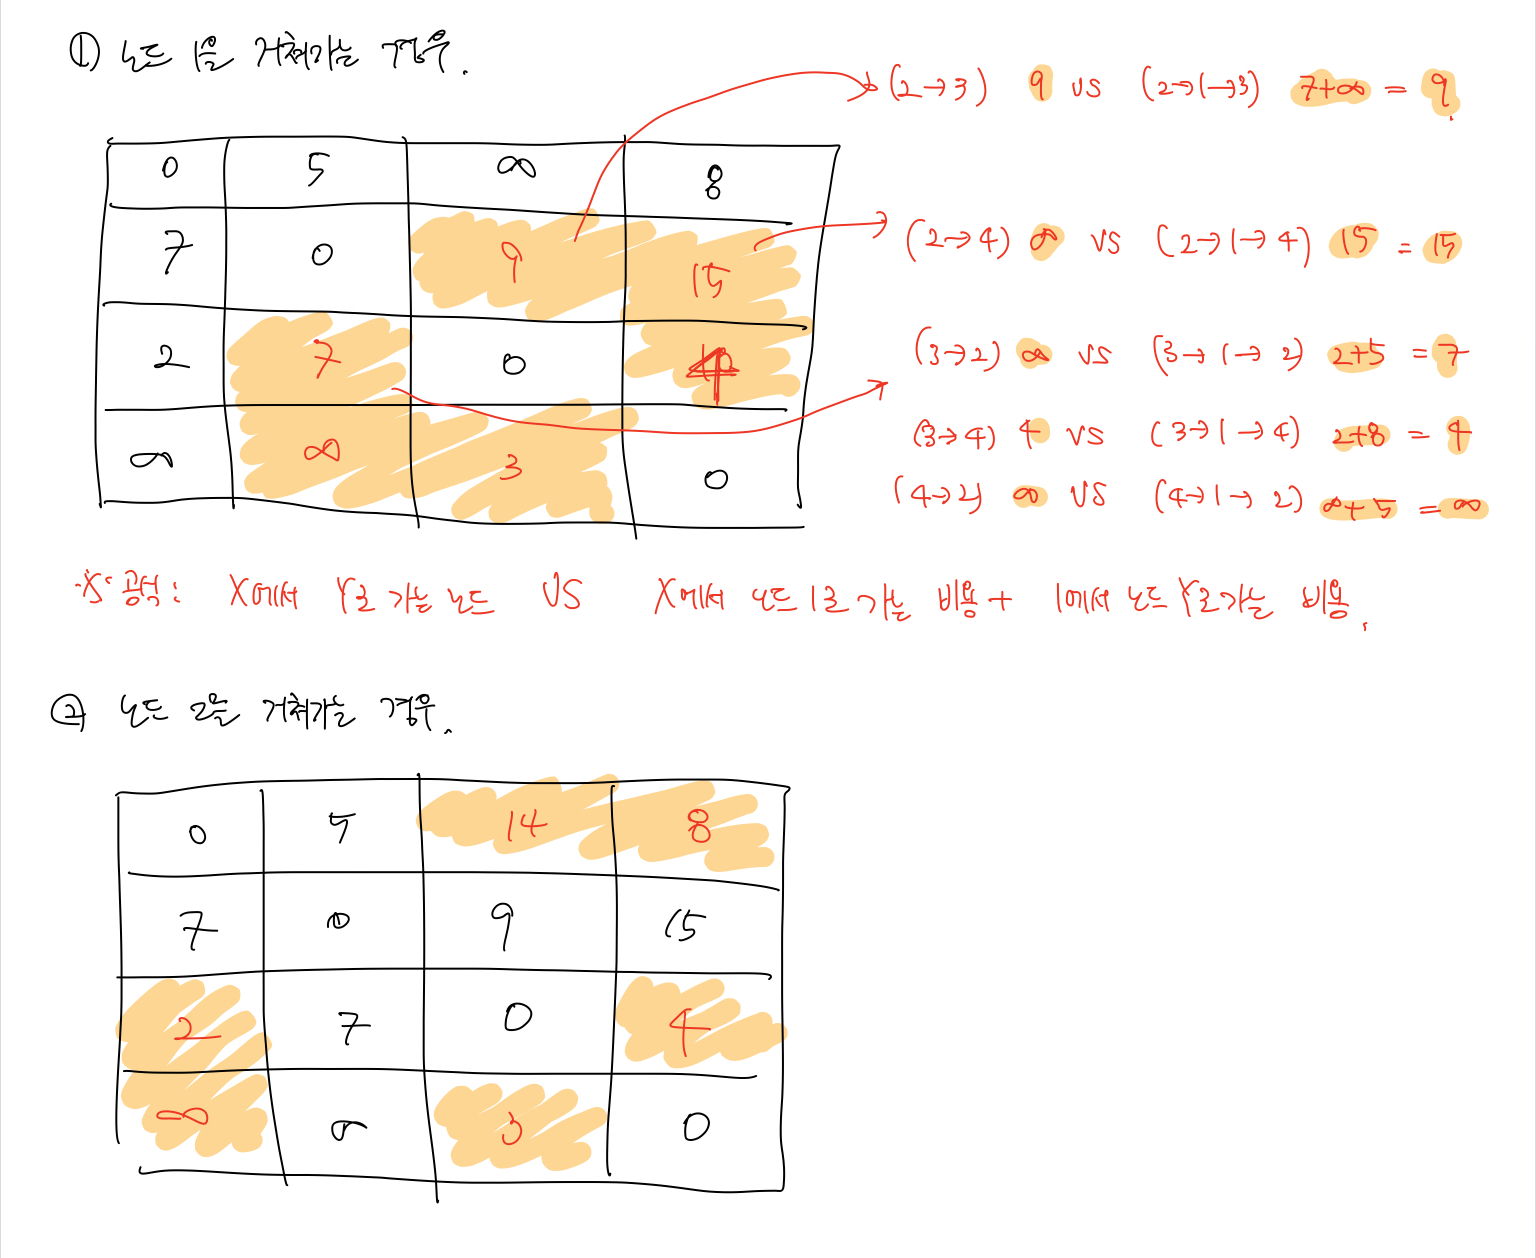 ① 노드 1을 거쳐가는 경우.
(2→3) 9 vs (2→1→3) 7+∞ = 9.
0 5 ∞ 8
7 0 9 15
(2→4) ∞ vs (2→1→4) 15 = 15
2 7 0 4
(3→2) ∞ vs (3→1→2) 2+5 = 7
(3→4) 4 vs (3→1→4) 2+8 = 4
∞ ∞ 3 0
(4→2) ∞ vs (4→1→2) ∞+5 = ∞
※ 공식: X에서 Y로 가는 노드 VS X에서 노드 1로 가는 비용 + 1에서 노드 Y로 가는 비용.
② 노드 2을 거쳐가는 경우.
0 5 14 8
7 0 9 15
2 7 0 4
∞ ∞ 3 0